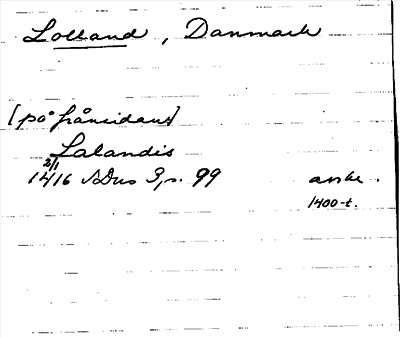 Lolland, Danmark
[på frånsidan]
Lalandis
2/1
1416 SDns 3, s. 99 avskr.
1400-t.